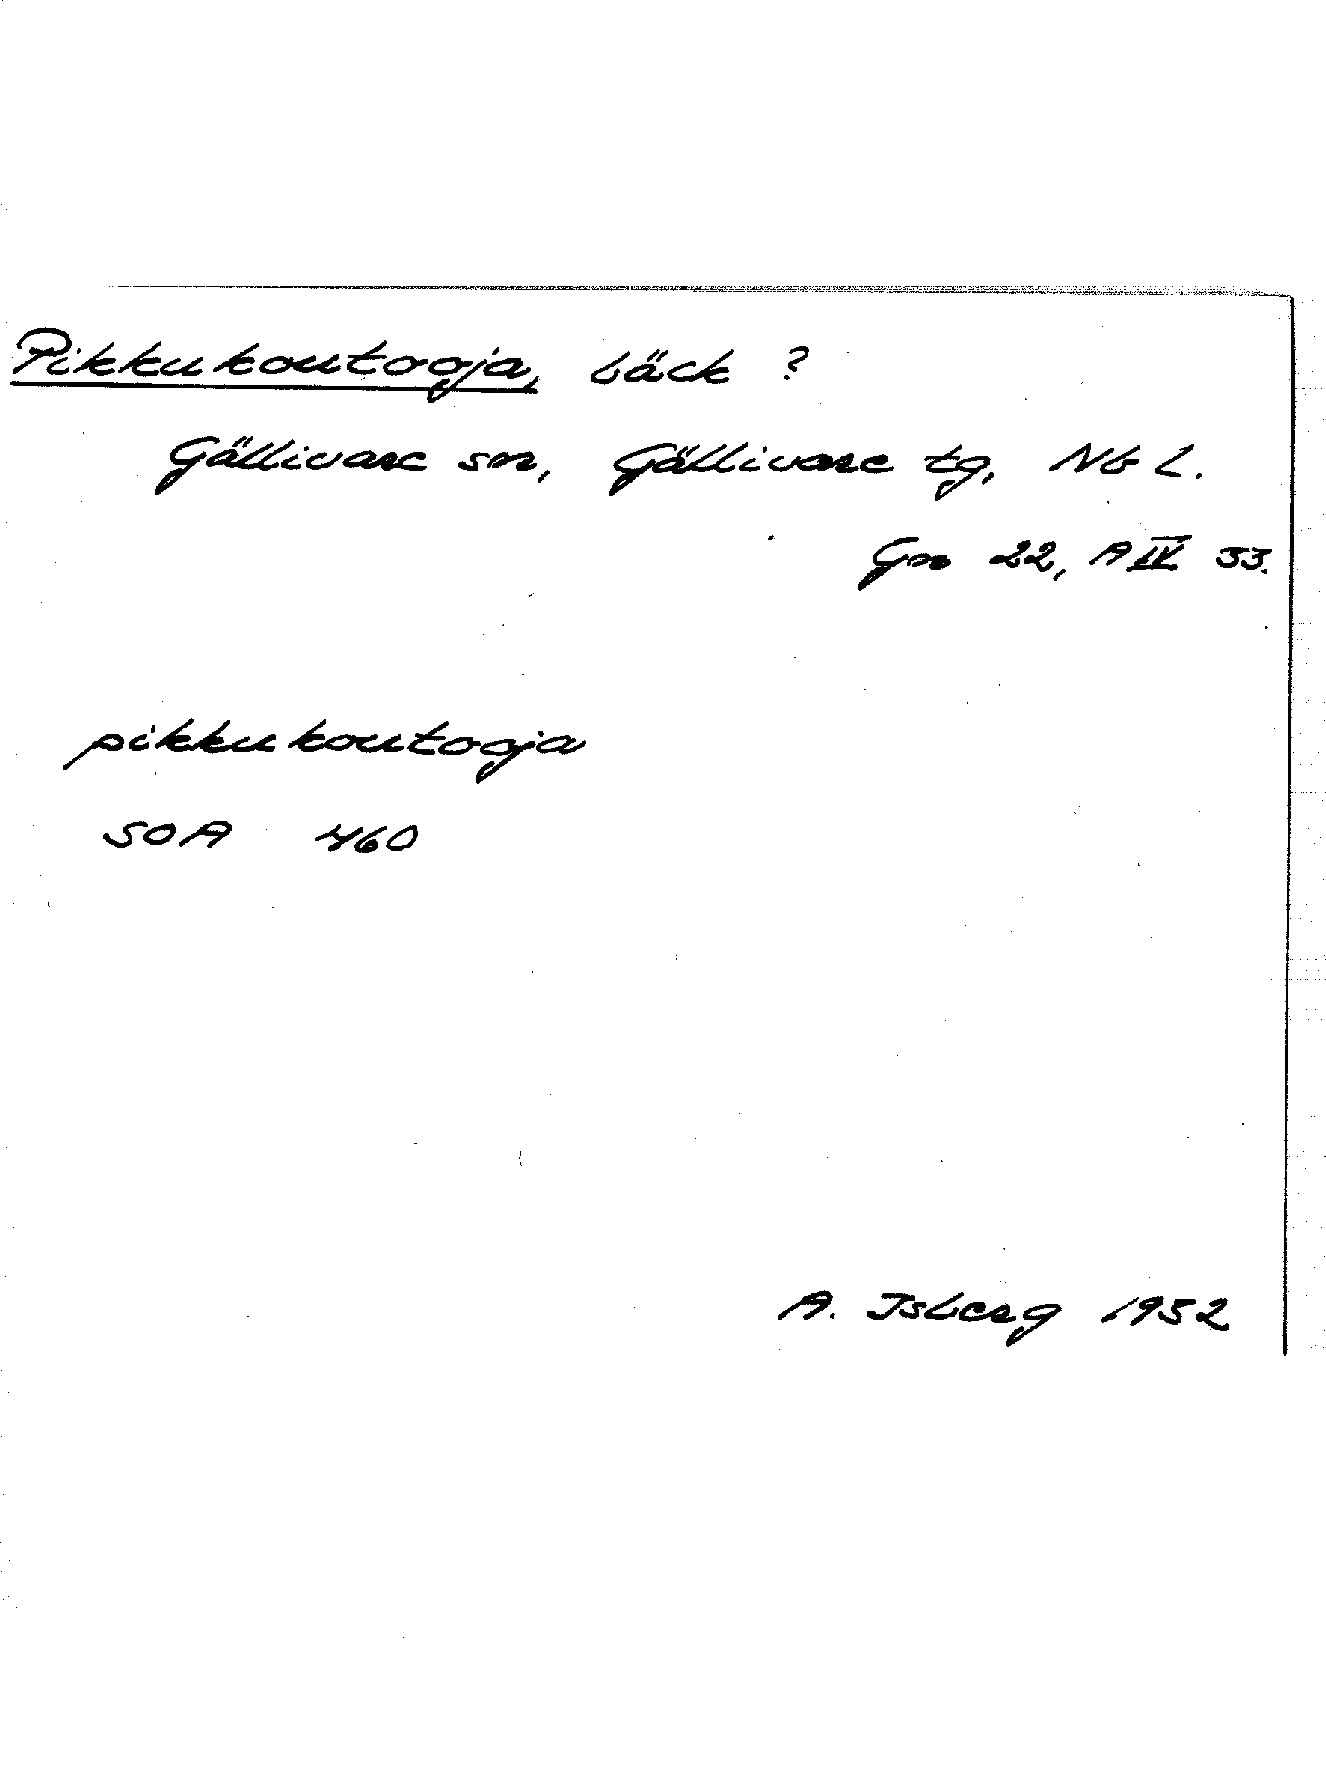 Pikkukoutooja, bäck ?
Gällivare sn, Gällivare tg, Nb L.
Gn 22, A IV 33.
pikkukoutooja
SOA 460
A. Isberg 1952